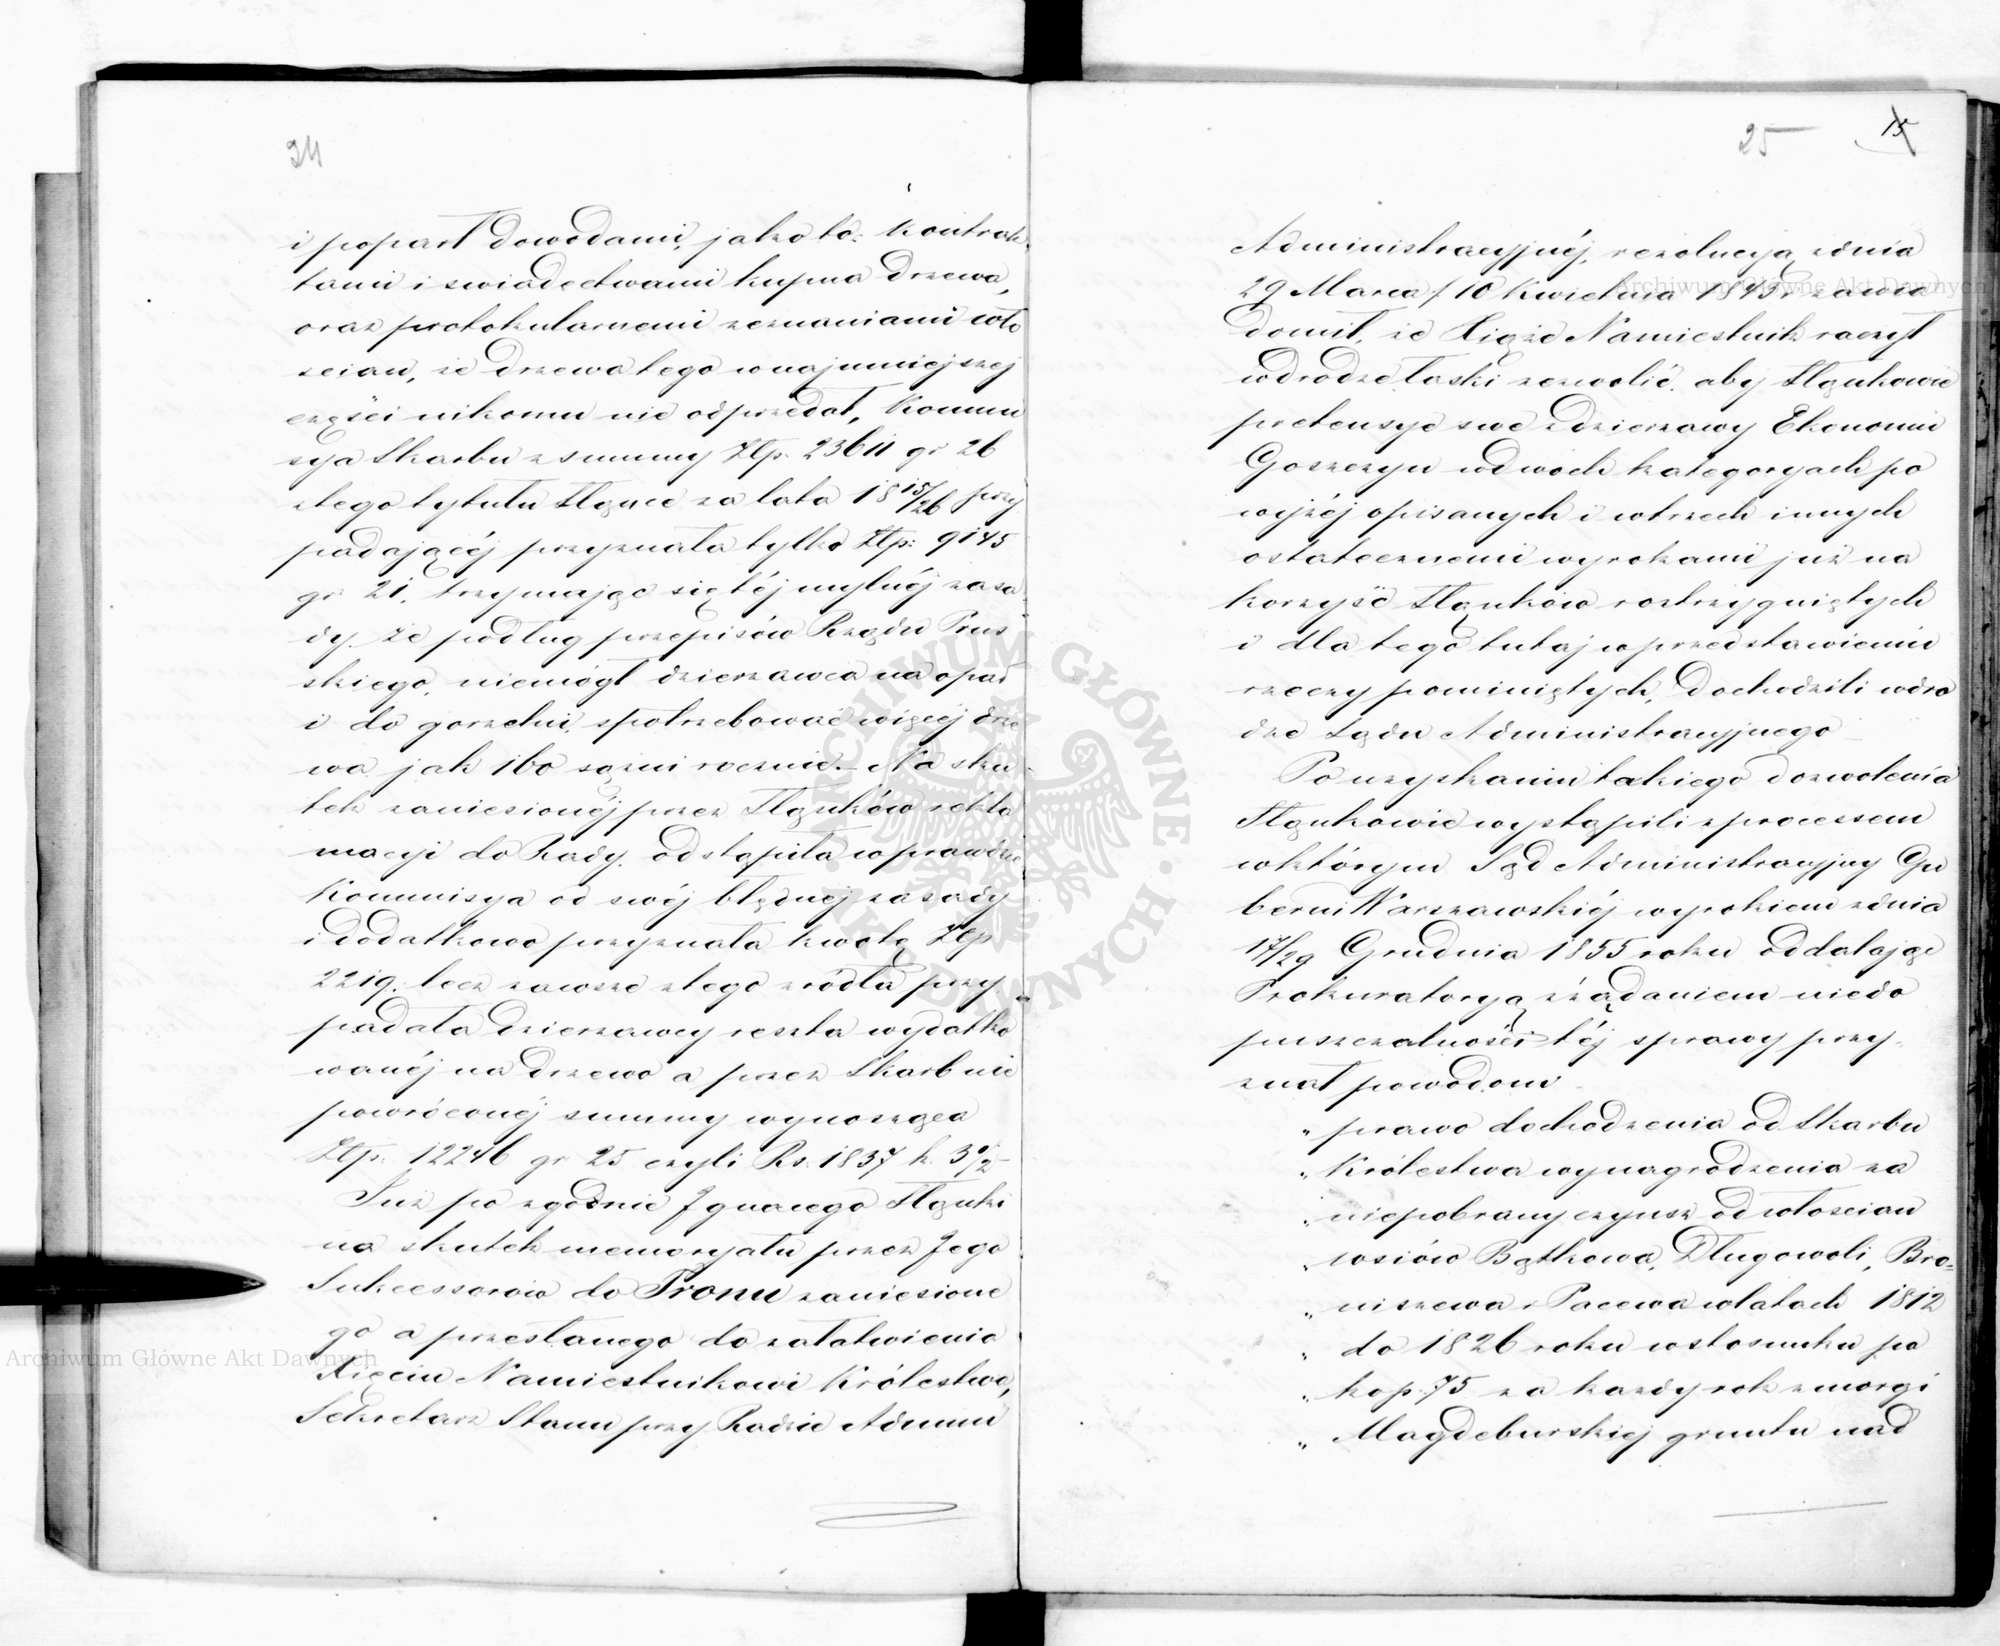 24
i poparł dowodami, jako to: kontrak-
tami i swiadectwami kupna drzewa,
oraz protokularnemi zeznaniami wło
scian, że drzewa tego w najmniejszej
części nikomu nie odprzedał, Kommi
sya Skarbu z summy Złp. 23611 gr 26
z tego tytułu Ilgnce za lata 1815/26 przy
padającéj przyznała tylko Złp: 9145
gr 21. trzymając się téj mylnéj zasa
dy, że podług przepisów Rządu Prus
skiego, niemógł dzierzawca na opał
i do gorzelni, spotrzebować więcéj drze
wa jak 160 sążni rocznie. Na sku
tek zaniesionéj przez Ilgnków rekla
macyi do Rady, odstąpiła wprawdzie
Kommisya od swéj błędnéj zasady
i dodatkowo przyznała kwotę Złp
2219. lecz zawsze z tego źródła przy
padała dzierzawcy reszta wydatko
wanéj na drzewo a przez Skarb nie
powróconéj summy wynosząca
Złp: 12246 gr 25 czyli Rs. 1837 k. 3½
Już po zgodnie Ignacego Ilgnki
na skutek memoryału przez Jego
Sukcessorów do Tronu zaniesione
go a przesłanego do załatwienia
Xięciu Namiestnikowi Królestwa,
Sekretarz Stanu przy Radzie Admini
25
15
Administracyjnéj, rezolucyą z dnia
29 Marca / 10 Kwietnia 1845 r zawia
domił, że Xiąże Namiestnik raczył
w drodze łaski zezwolić, aby Ilgnkowie
pretensye swe z dzierzawy Ekonomii
Goszczyn w dwóch kategoryach po
wyżéj opisanych i w trzech innych
ostatecznemi wyrokami już na
korzyść Ilgnków rozstrzygniętych
i dla tego tutaj w przedstawieniu
rzeczy pominiętych, dochodzili w dro
dze Sądu Administracyjnego
Po uzyskaniu takiego dozwolenia
Ilgnkowie wystąpili z processem
w którym Sąd Administracyjny Gu
berni Warszawskiéj wyrokiem z dnia
17/29 Grudnia 1855 roku oddalając
Prokuratoryą z żądaniem niedo
puszczalności téj sprawy przy-
znał powodom
„ prawo dochodzenia od Skarbu
„ Królestwa wynagrodzenia za
„ niepobrany czynsz od włoscian
„ wsiów Bątkowa, Długowoli, Bro=
„ niszewa i Pacewa w latach 1812
„ do 1826 roku w stosunku po
„ kop. 75 za każdy rok z morgi
„ Magdeburskiej gruntu nad
Archiwum Główne Akt Dawnych
Archiwum Główne Akt Dawnych
ARCHIWUM GŁÓWNE · AKT DAWNYCH ·